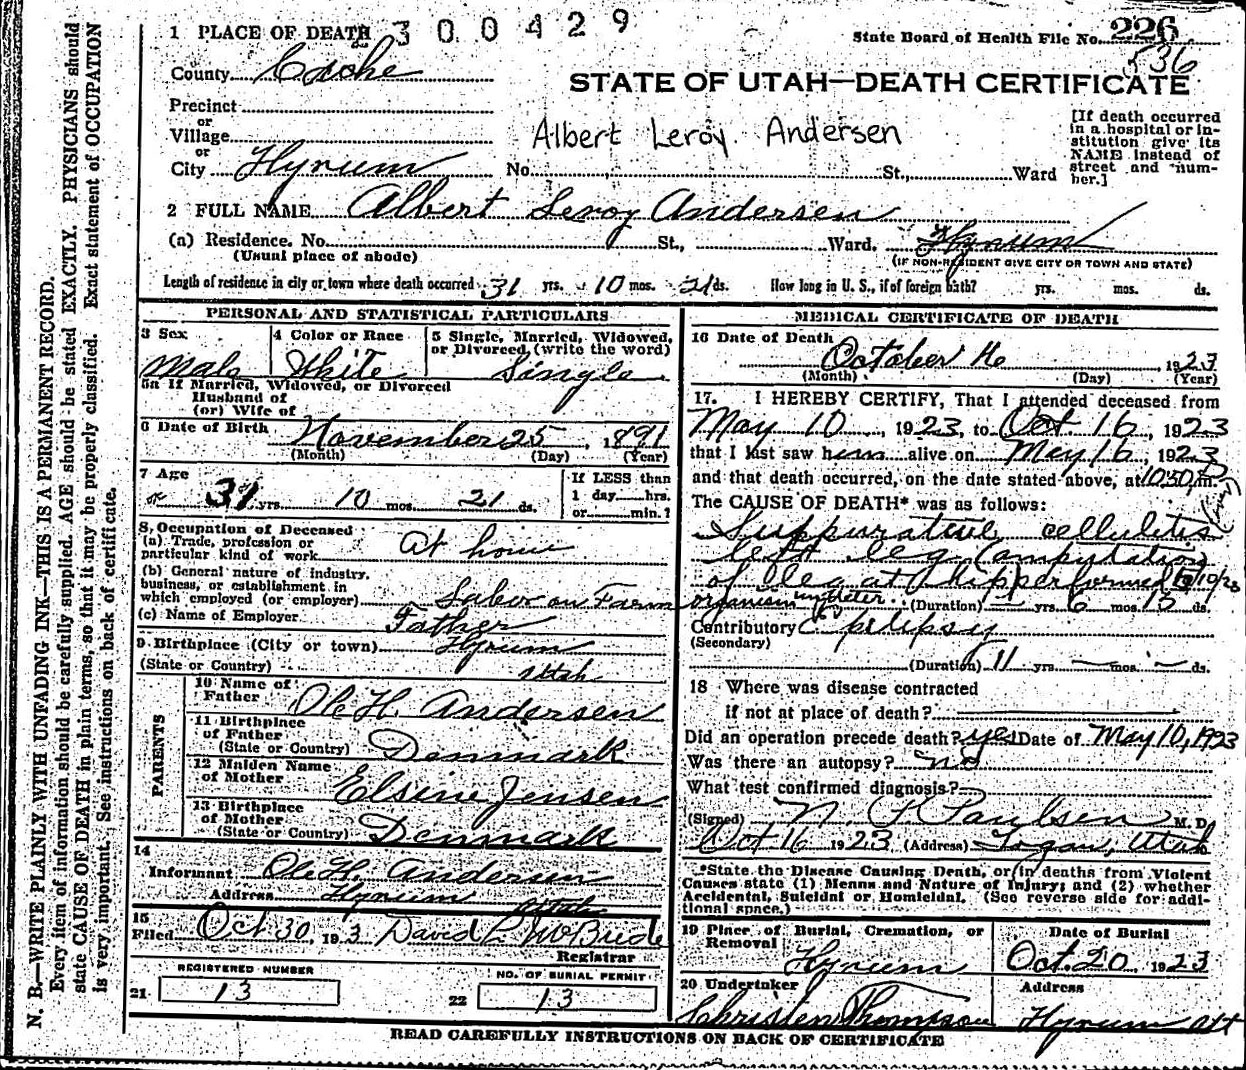 300429
1 PLACE OF DEATH
State Board of Health File No. 226
536
County Cache
STATE OF UTAH—DEATH CERTIFICATE
Precinct
or
Village
Albert Leroy Andersen
[If death occurred
in a hospital or in-
stitution give its
NAME instead of
street and num-
ber.]
or
City Hyrum No. St., Ward
2 FULL NAME Albert Leroy Andersen
(a) Residence. No. St., Ward. Hyrum
(Usual place of abode) (IF NON-RESIDENT GIVE CITY OR TOWN AND STATE)
Length of residence in city or town where death occurred 31 yrs. 10 mos. 21 ds. How long in U. S., if of foreign birth? yrs. mos. ds.
PERSONAL AND STATISTICAL PARTICULARS
3 Sex 4 Color or Race 5 Single, Married, Widowed,
or Divorced (write the word)
Male White Single
5a If Married, Widowed, or Divorced
Husband of
(or) Wife of
6 Date of Birth November 25, 1891
(Month) (Day) (Year)
7 Age If LESS than
1 day hrs.
or 31 yrs. 10 mos. 21 ds. or min.?
8 Occupation of Deceased
(a) Trade, profession or
particular kind of work At home
(b) General nature of industry,
business, or establishment in
which employed (or employer) Labor on Farm
(c) Name of Employer Father
9 Birthplace (City or town) Hyrum
(State or Country) Utah
PARENTS
10 Name of
Father Ole H. Andersen
11 Birthplace
of Father
(State or Country) Denmark
12 Maiden Name
of Mother Elsine Jensen
13 Birthplace
of Mother
(State or Country) Denmark
14
Informant Ole H. Andersen
Address Hyrum Utah
15
Filed Oct 30, 1923 David L McBride
Registrar
REGISTERED NUMBER NO. OF BURIAL PERMIT
21 13 22 13
MEDICAL CERTIFICATE OF DEATH
16 Date of Death
October 16 1923
(Month) (Day) (Year)
17. I HEREBY CERTIFY, That I attended deceased from
May 10, 1923, to Oct. 16, 1923
that I last saw him alive on May 16, 1923
and that death occurred, on the date stated above, at 1050 P m.
The CAUSE OF DEATH* was as follows:
Suppurative cellulitis
left leg (amputation
of leg at hip performed
organism undeter. (Duration) — yrs. 6 mos. 15 ds.
Contributory Epilepsy
(Secondary)
(Duration) 11 yrs. — mos. — ds.
18 Where was disease contracted
if not at place of death?
Did an operation precede death? yes Date of May 10, 1923
Was there an autopsy? no
What test confirmed diagnosis?
(Signed) N. F. Paulsen M. D.
Oct 16 1923 (Address) Logan, Utah
*State the Disease Causing Death, or in deaths from Violent
Causes state (1) Means and Nature of Injury; and (2) whether
Accidental, Suicidal or Homicidal. (See reverse side for addi-
tional space.)
19 Place of Burial, Cremation, or
Removal Date of Burial
Hyrum Oct. 20, 1923
20 Undertaker Address
Christen Thompson Hyrum Ut
READ CAREFULLY INSTRUCTIONS ON BACK OF CERTIFICATE
N. B.—WRITE PLAINLY WITH UNFADING INK—THIS IS A PERMANENT RECORD.
Every item of information should be carefully supplied. AGE should be stated EXACTLY. PHYSICIANS should
state CAUSE OF DEATH in plain terms, so that it may be properly classified. Exact statement of OCCUPATION
is very important. See instructions on back of certificate.